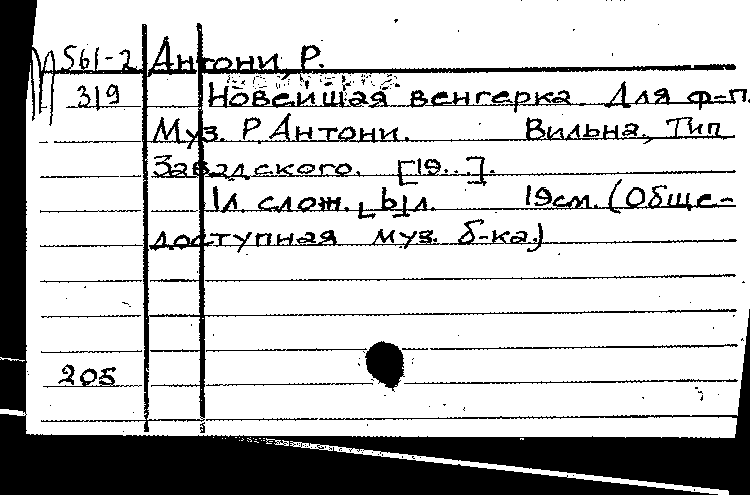 М 561-2 Антони, Р.
319 Новейшая венгерка. Для ф-п.
Муз. Р. Антони. Вильна, Тип
Завадского. [19...].
1л. слож. [ь]л. 19см. (Обще-
доступная муз. б-ка.)
205